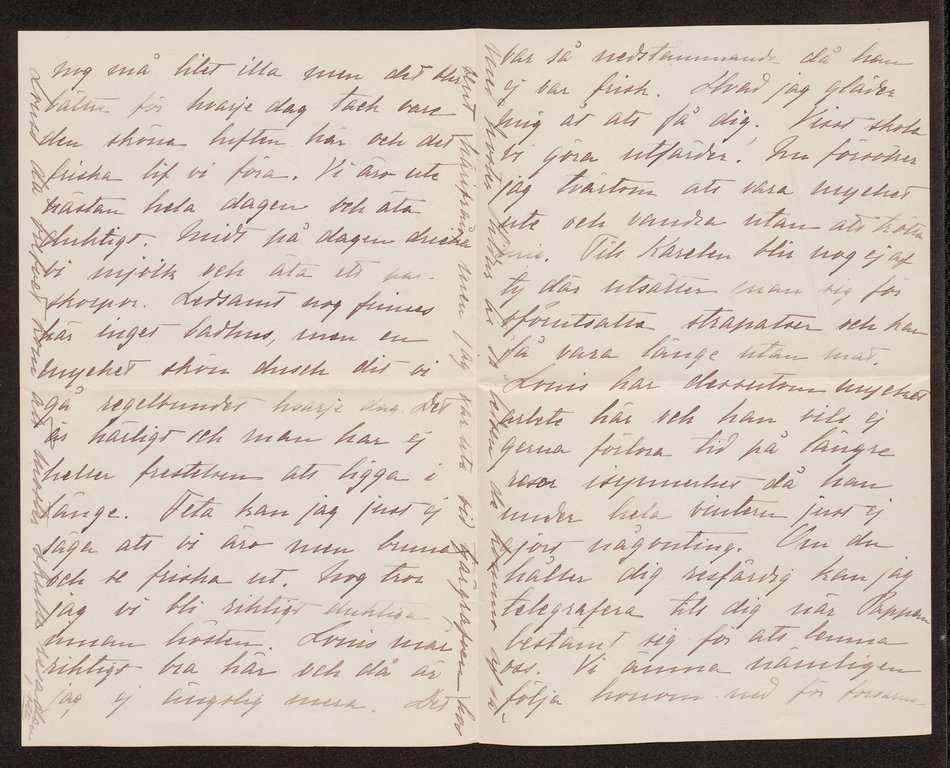 nog må litet illa men det blir
bättre för hvarje dag tack vare
den sköna luften här och det
friska lif vi föra. Vi äro ute
nästan hela dagen och äta
duktigt. Midt på dagen dricka
vi mjölk och äta ett par
skorpor. Ledsamt nog finnes
här inget badhus, men en
mycket skön dusch dit vi
gå regelbundet hvarje dag. Det
är härligt och man har ej
heller frestelsen att ligga i
länge. Feta kan jag just ej
säga att vi äro men bruna
och se friska ut. Nog tror
jag vi bli riktigt duktiga
innan hösten. Louis mår
riktigt bra här och då är
jag ej ängslig mera. Det
var så nedstämmande då han
ej var frisk. Hvad jag gläder
mig åt att få dig. Visst skola
vi göra utfärder! Nu försöker
jag tvärtom att vara mycket
ute och vandra utan att trötta
mig. Till Karelen blir nog ej af
ty där utsätter man sig för
oförutsatta strapatser och kan
få vara länge utan mat.
Louis har dessutom mycket
arbete här och han vill ej
gerna förlora tid på längre
resor isynnerhet då han
under hela vintern just ej
gjort någonting. Om du
håller dig resfärdig kan jag
telegrafera till dig när Pappa
bestämt sig för att lemna
oss. Vi ämna nämligen
följa honom ned för forsarne